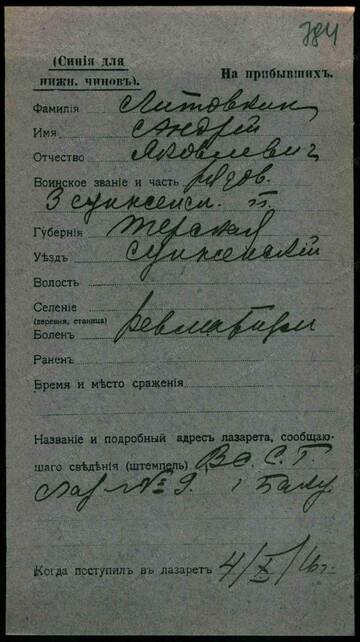 784
(Синія для
нижн. чиновъ).
На прибывшихъ.
Фамилія Литовкин
Имя Андрій
Отчество Яковлевич
Воинское званіе и часть рядов.
3 сунженск. п.
Губернія Терская
Уѣздъ сунженскій
Волость
Селеніе
(деревня, станица)
Боленъ ревматизм
Раненъ
Время и мѣсто сраженія
Названіе и подробный адресъ лазарета, сообщаю-
щаго свѣдѣнія (штемпель) В.С.Г.
Лаз № 9. г Баку
Когда поступилъ въ лазаретъ 4/X/16 г.